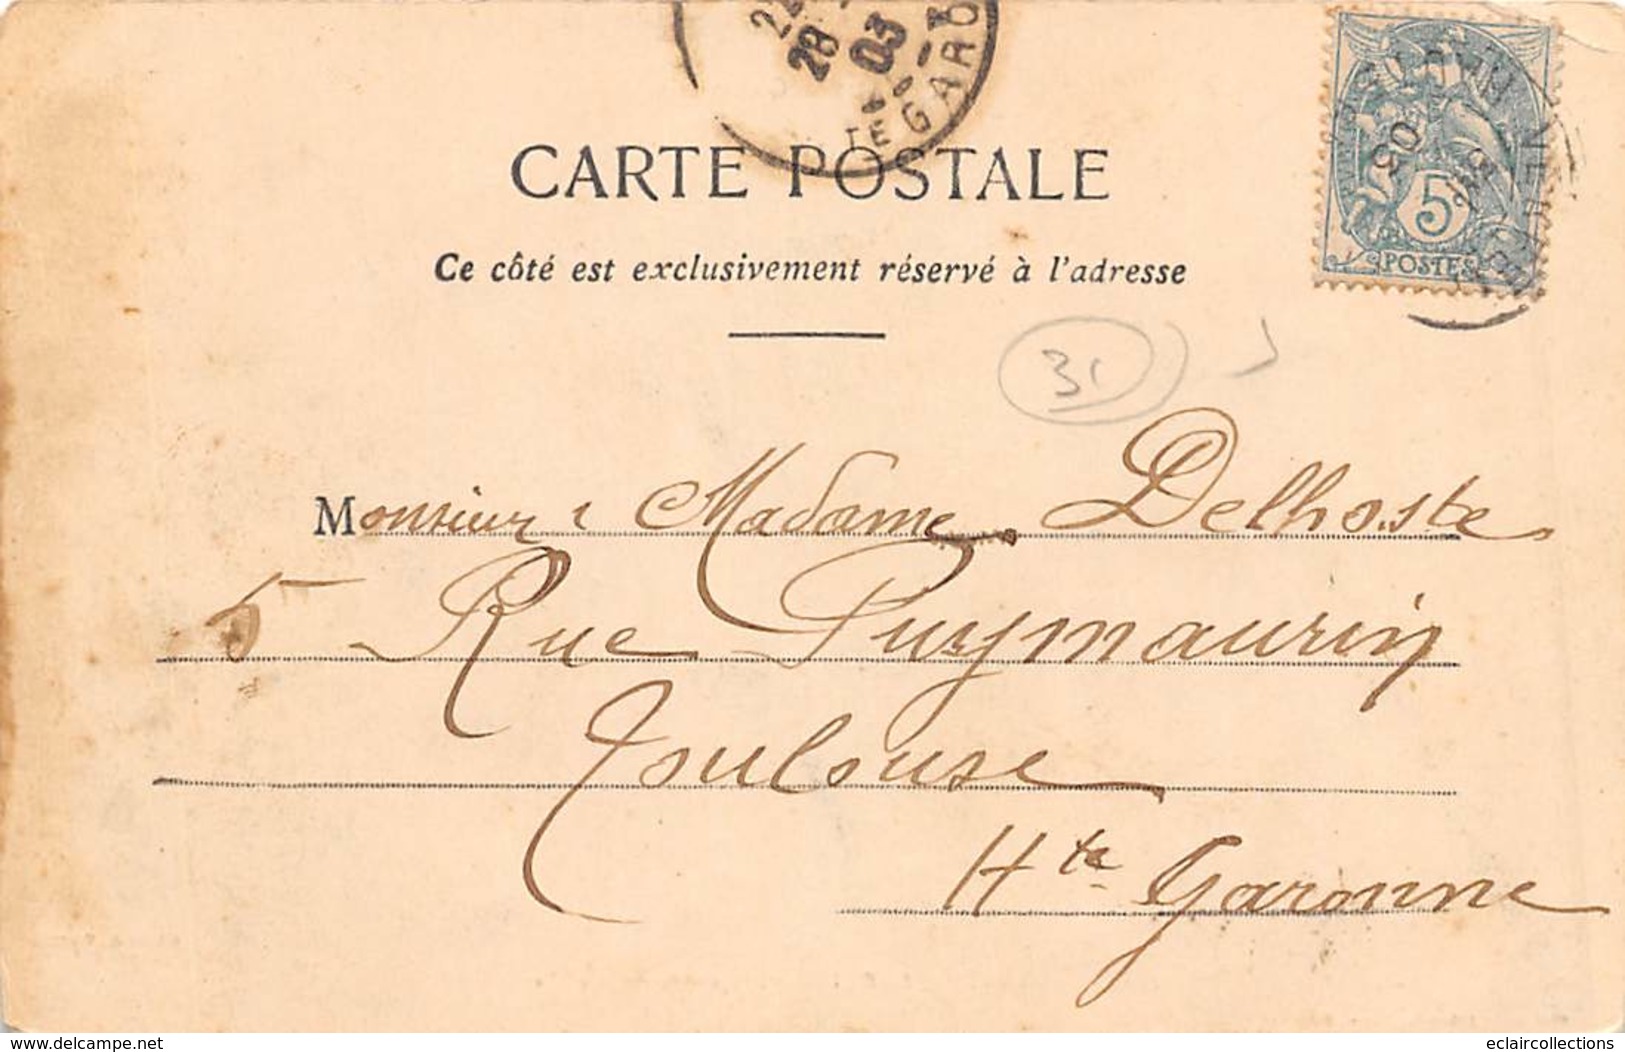 28
03
GAR
CARTE POSTALE
Ce côté est exclusivement réservé à l'adresse
5
POSTES
03
31
Monsieur & Madame Delhoste
5 Rue Puymaurin
Toulouse
Hte Garonne
delcampe.net
eclaircollections